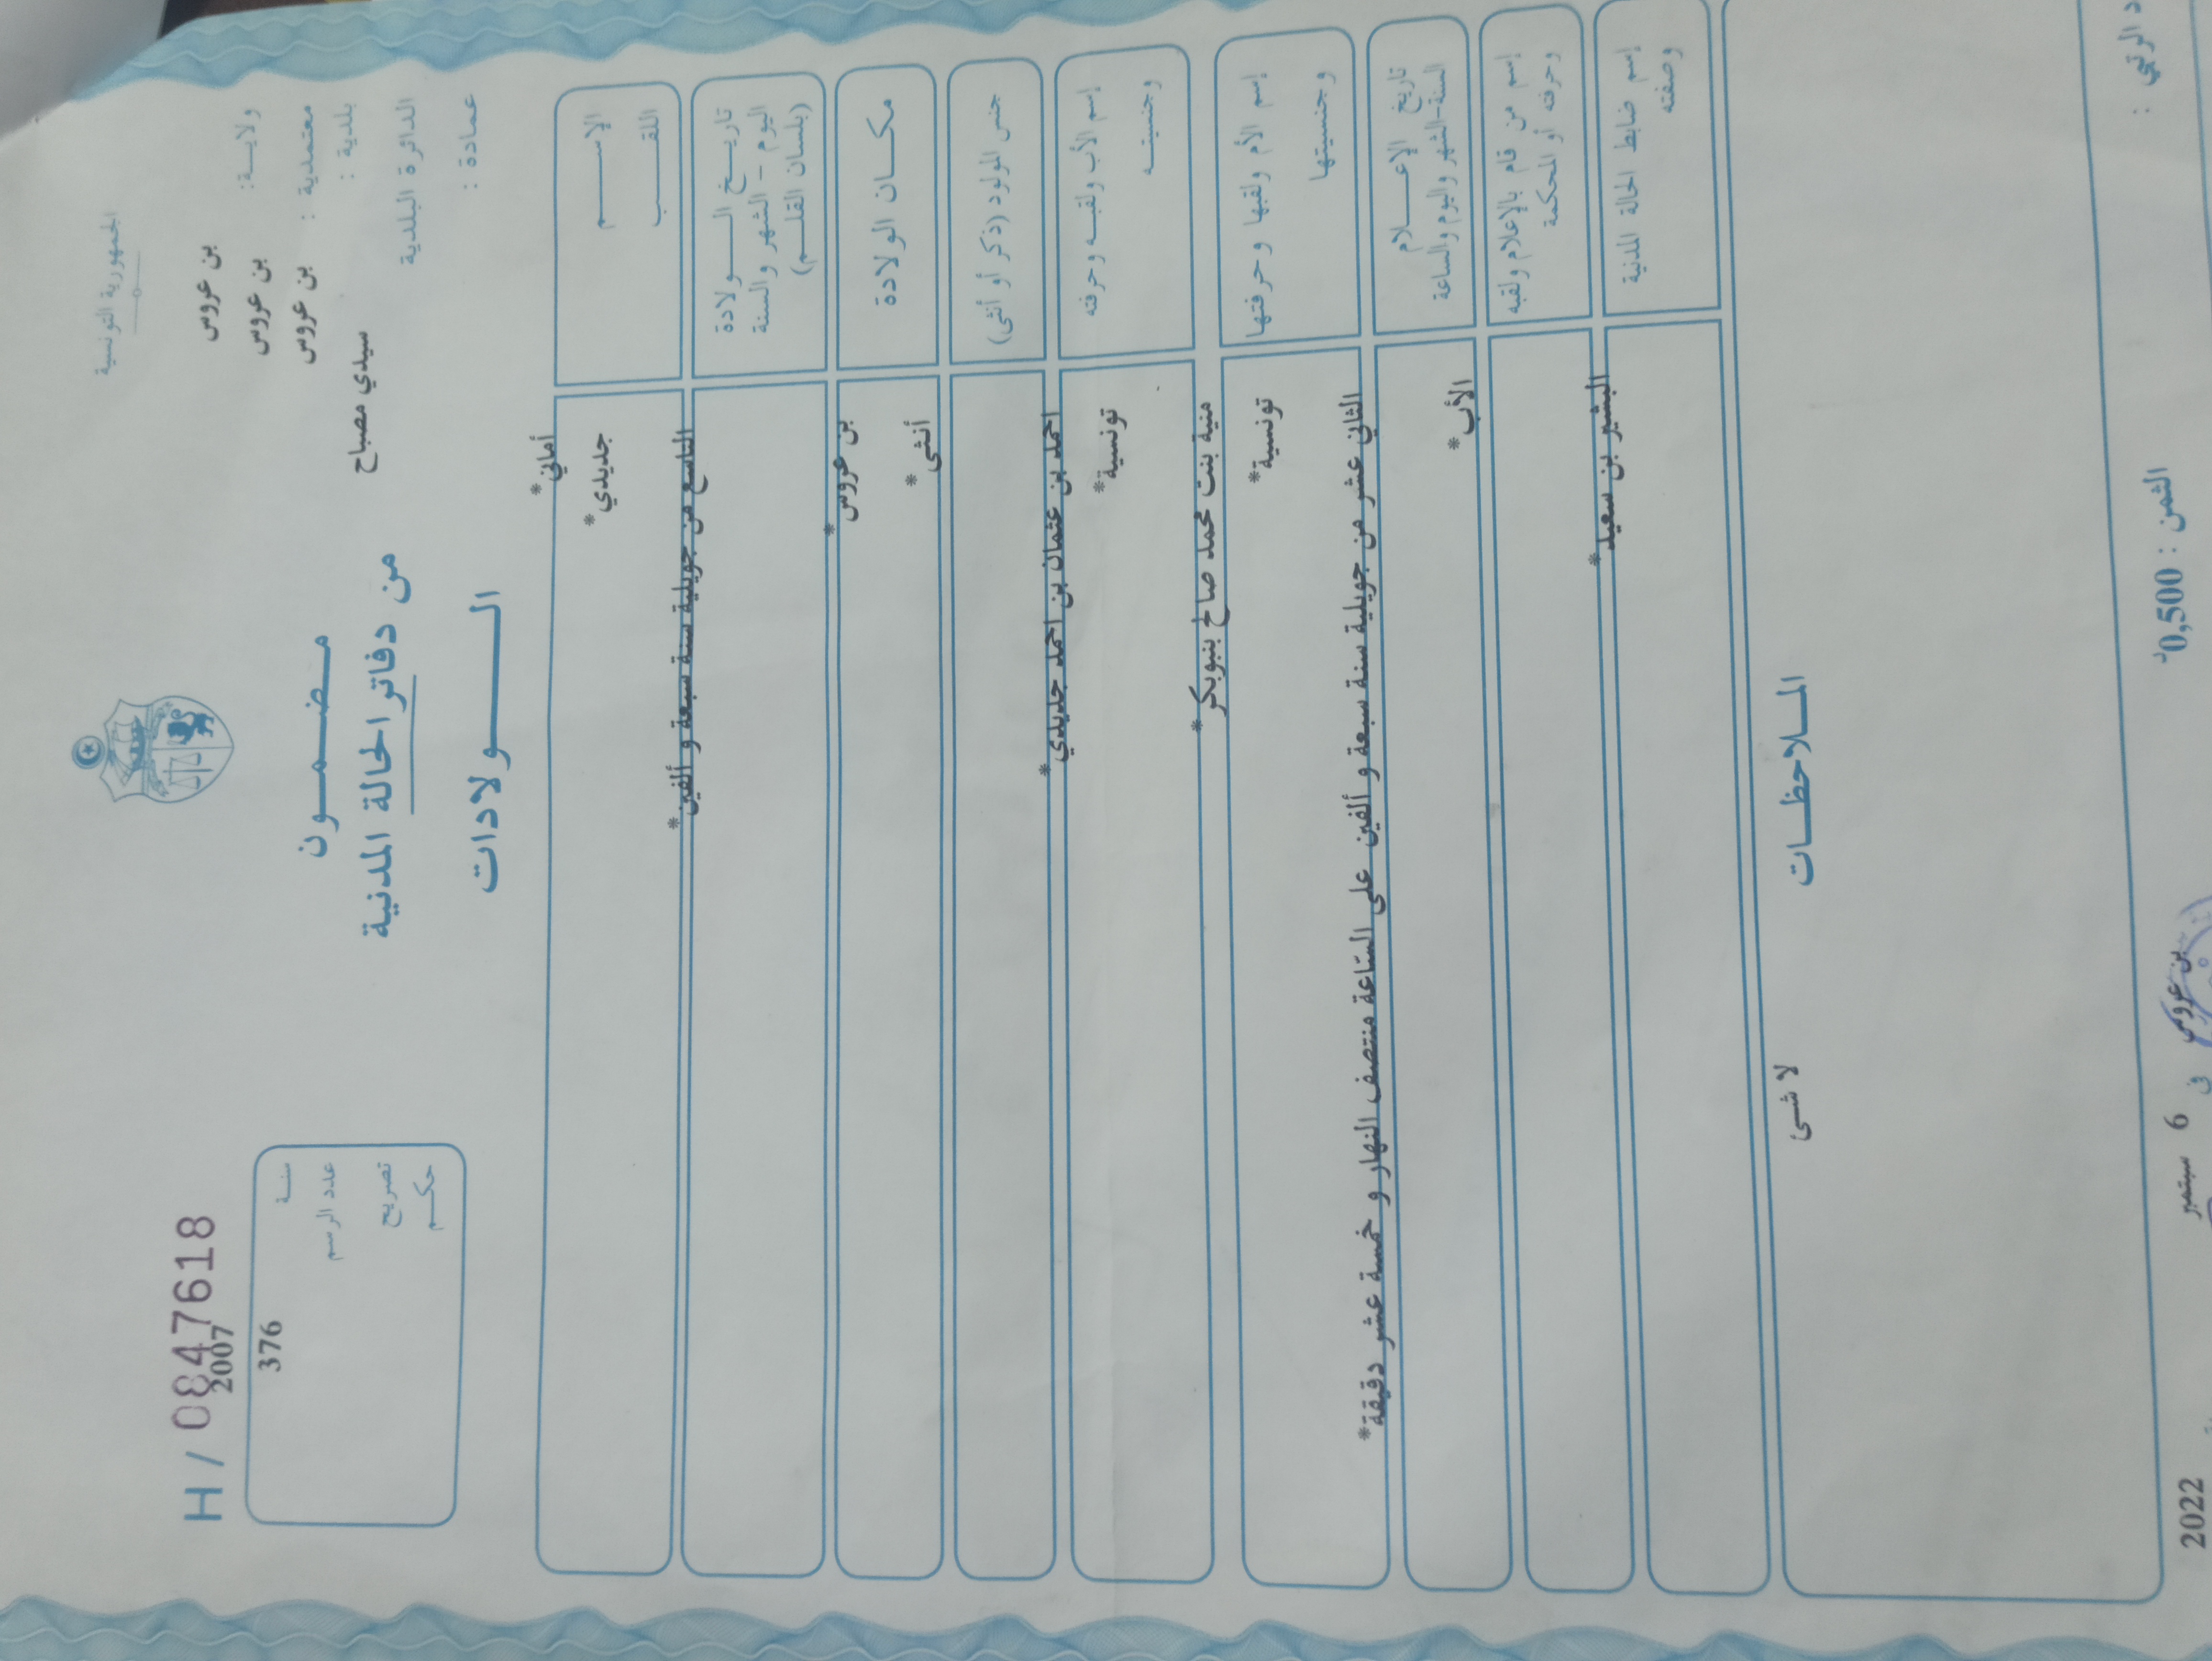 الجمهورية التونسية
ولايـــة: بن عروس
معتمدية : بن عروس
بلدية : بن عروس
الدائرة البلدية سيدي مصباح
عمادة :
مـضـمـــون
من دفاتر الحالة المدنية
الـــولادات
H / 0847618
2007
سنـة
376
عدد الرسم
تصريح
حكـــم
الإســـــم أماني*
اللقـــــب جديدي*
تاريـــخ الـــــولادة
اليوم – الشهر والسنة
(بلسان القلـــم)
التاسع من جويلية سنة سبعة و ألفين*
مكـــان الولادة بن عروس*
جنس المولود (ذكر أو أنثى) أنثى*
إسم الأب ولقبـــه وحرفته احمد بن عثمان بن احمد جديدي*
وجنسيتـــه تونسية*
إسم الأم ولقبها وحرفتها منية بنت محمد صالح بنبوبكر*
وجنسيتها تونسية*
تاريخ الإعـــــلام
السنة-الشهر واليوم والساعة
الثاني عشر من جويلية سنة سبعة و ألفين على السّاعة منتصف النهار و خمسة عشر دقيقة*
إسم من قام بالإعلام ولقبه
وحرفته أو المحكمة
الأب*
إسم ضابط الحالة المدنية
وصفته
البشير بن سعيد*
المـــلاحظـــات
لا شىئ
الرتبي :
الثمن : 0,500د
بن عروس في 6 سبتمبر 2022